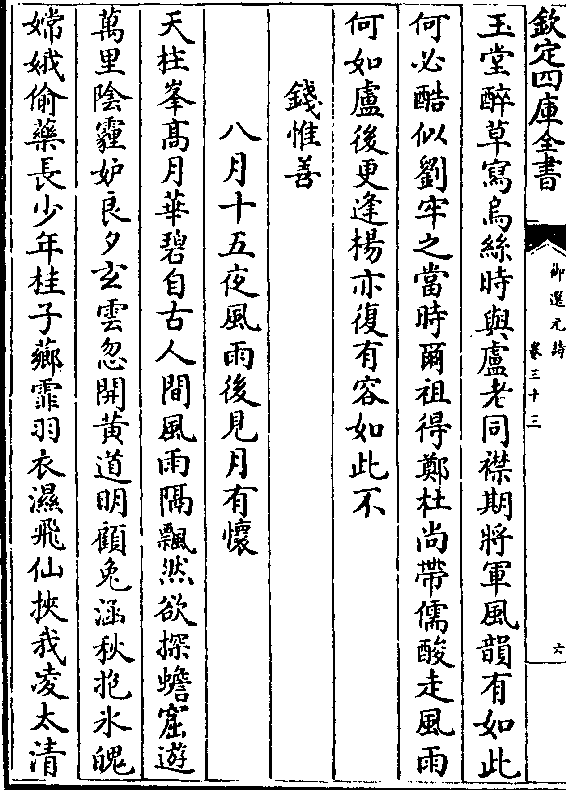 欽定四庫全書
御選元詩
卷三十三
六
玉堂醉草寫烏絲時與盧老同襟期將軍風韻有如此
何必酷似劉牢之當時爾祖得鄭杜尚帶儒酸走風雨
何如盧後更逢楊亦復有容如此不
錢惟善
八月十五夜風雨後見月有懷
天柱峯髙月華碧自古人間風雨隔飄然欲探蟾窟遊
萬里陰霾妒良夕玄雲忽開黄道明顧兔涵秋抱氷魄
嫦娥偷藥長少年桂子薌霏羽衣濕飛仙挾我凌太清